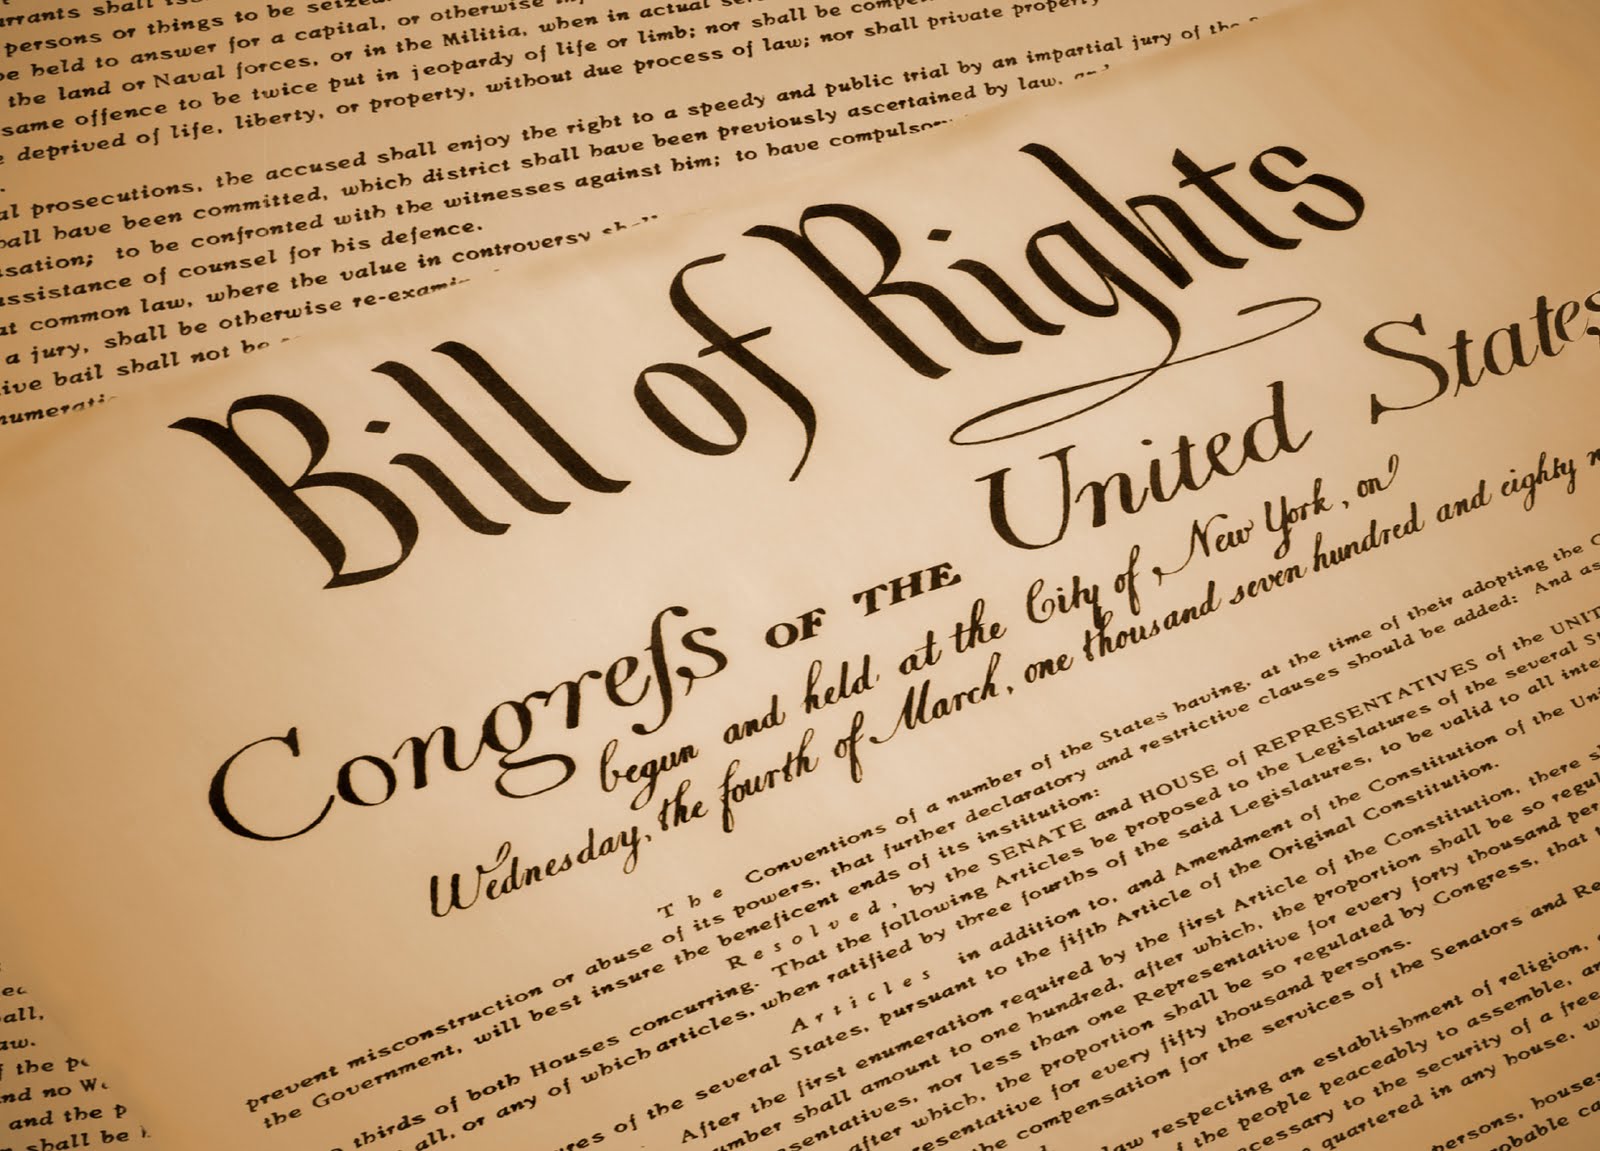 rrants shall
persons or things to be seized.
be held to answer for a capital, or otherwise
the land or Naval forces, or in the Militia, when in actual
same offence to be twice put in jeopardy of life or limb; nor shall be
deprived of life, liberty, or property, without due process of law; nor shall private property
al prosecutions, the accused shall enjoy the right to a speedy and public trial by an impartial jury of the
hall have been committed, which district shall have been previously ascertained by law, and
sation; to be confronted with the witnesses against him; to have compulsory
assistance of counsel for his defence.
at common law, where the value in controversy shall
a jury, shall be otherwise re-exami
ive bail shall not be
numerati
Bill of Rights
Congreſs OF THE United States
begun and held at the City of New York, on
Wednesday, the fourth of March, one thousand seven hundred and eighty n
The Conventions of a number of the States having, at the time of their adopting the C
prevent misconstruction or abuse of its powers, that further declaratory and restrictive clauses should be added: And as
the Government, will best insure the beneficent ends of its institution:
Resolved, by the SENATE and HOUSE of REPRESENTATIVES of the UNIT
thirds of both Houses concurring. That the following Articles be proposed to the Legislatures of the several S
all, or any of which articles, when ratified by three fourths of the said Legislatures, to be valid to all inte
Articles in addition to, and Amendment of the Constitution of the Uni
ures of the several States, pursuant to the fifth Article of the Original Constitution.
After the first enumeration required by the first Article of the Constitution, there s
umber shall amount to one hundred, after which, the proportion shall be so regul
esentatives, nor less than one Representative for every forty thousand per
after which, the proportion shall be so regulated by Congress, that t
resentative for every fifty thousand persons.
the compensation for the services of the Senators and Re
law respecting an establishment of religion,
of the people peaceably to assemble, an
ecessary to the security of a free
quartered in any house, wi
persons, houses
robable ca
all,
aw.
f the pe
nd no
and the p
shall be